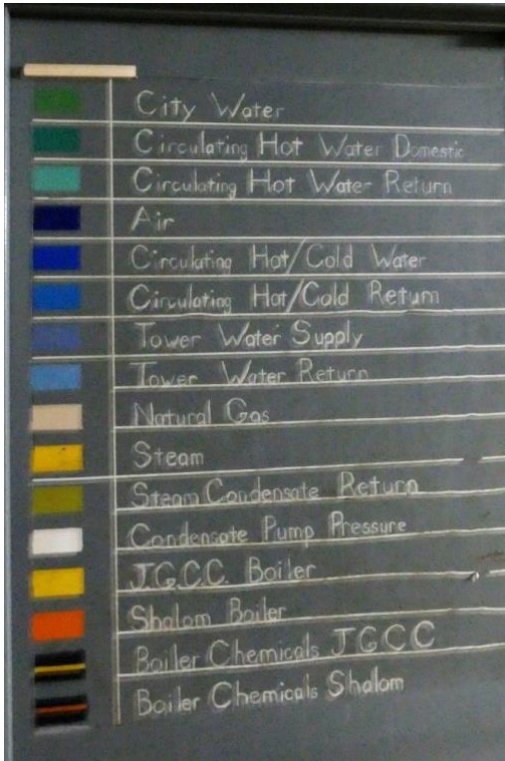 City Water
Circulating Hot Water Domestic
Circulating Hot Water Return
Air
Circulating Hot/Cold Water
Circulating Hot/Cold Return
Tower Water Supply
Tower Water Return
Natural Gas
Steam
Steam Condensate Return
Condensate Pump Pressure
J.G.C.C. Boiler
Shalom Boiler
Boiler Chemicals JGCC
Boiler Chemicals Shalom